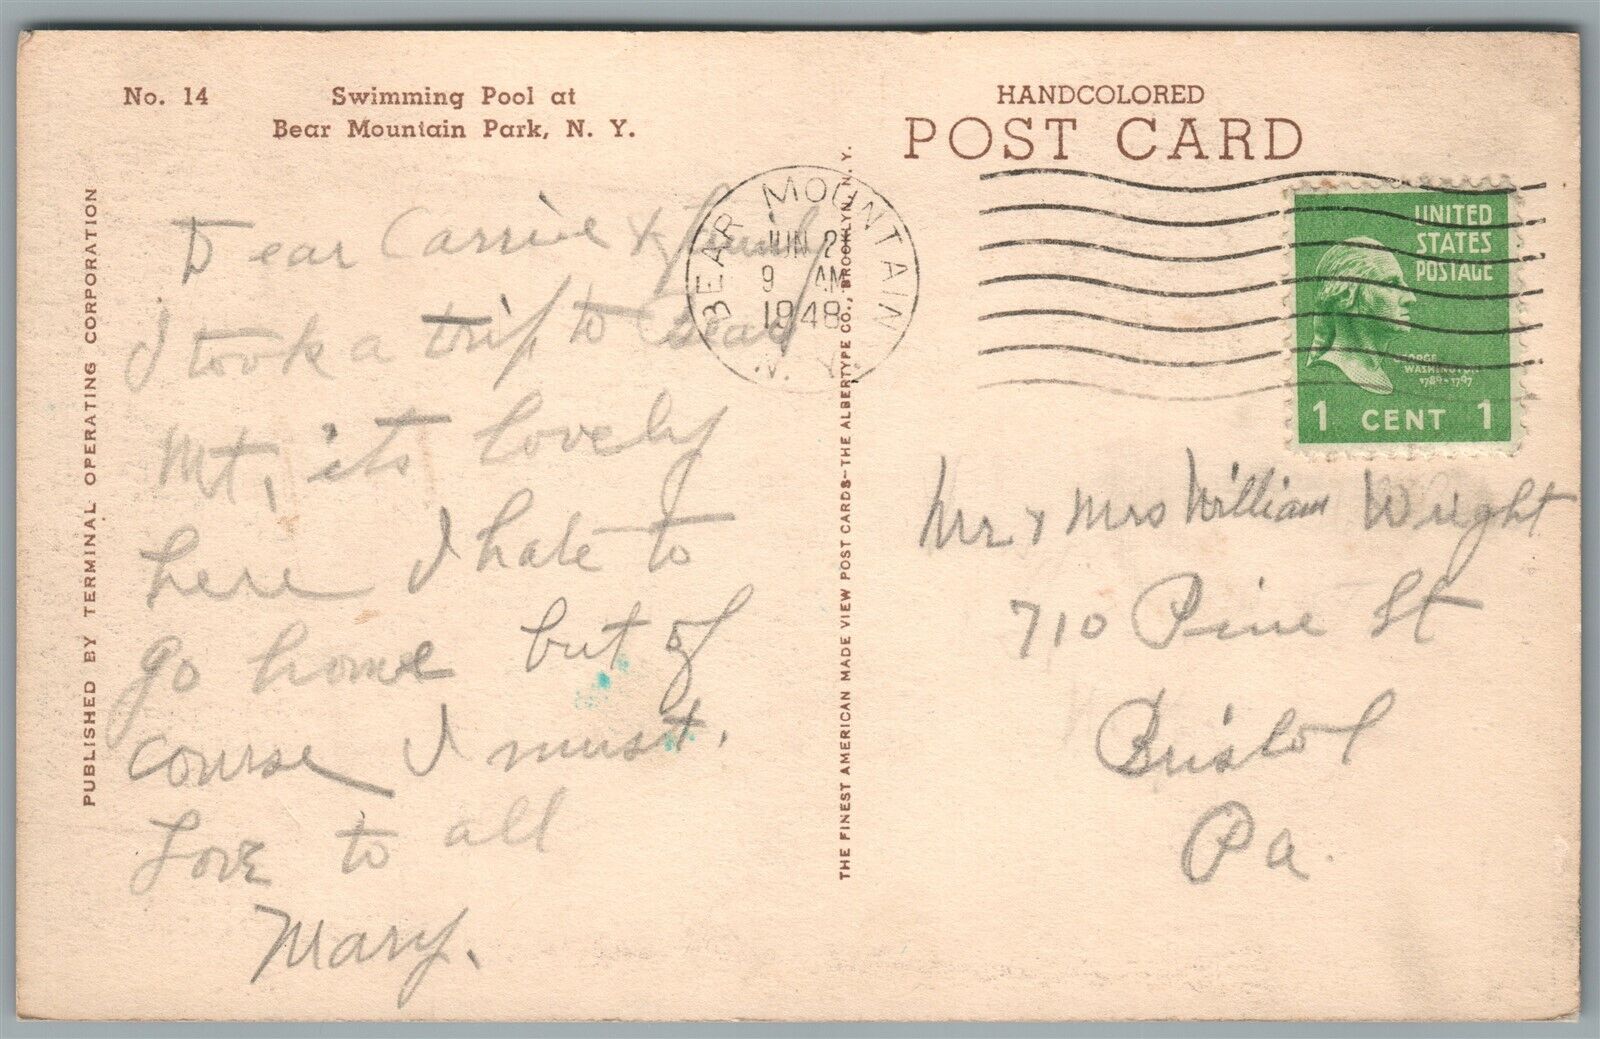 No. 14
Swimming Pool at
Bear Mountain Park, N. Y.
PUBLISHED BY TERMINAL OPERATING CORPORATION
Dear Carrie & family
I took a trip to Bear
Mt, its lovely
here I hate to
go home but of
course I must.
Love to all
Mary.
THE FINEST AMERICAN MADE VIEW POST CARDS—THE ALBERTYPE CO., BROOKLYN, N. Y.
HANDCOLORED
POST CARD
BEAR MOUNTAIN
JUN 2
9 AM
1948
N. Y.
UNITED
STATES
POSTAGE
GEORGE
WASHINGTON
1789-1797
1 CENT 1
Mr & Mrs William Wright
710 Pine St
Bristol
Pa.